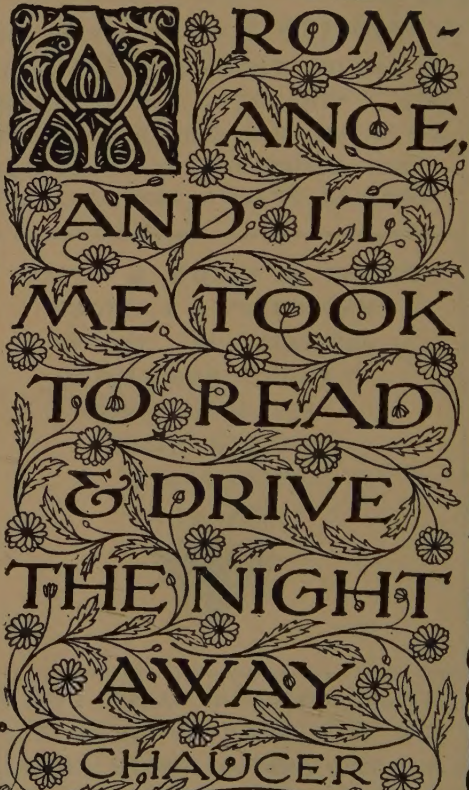 A ROM-
ANCE,
AND IT
ME TOOK
TO READ
& DRIVE
THE NIGHT
AWAY
CHAUCER